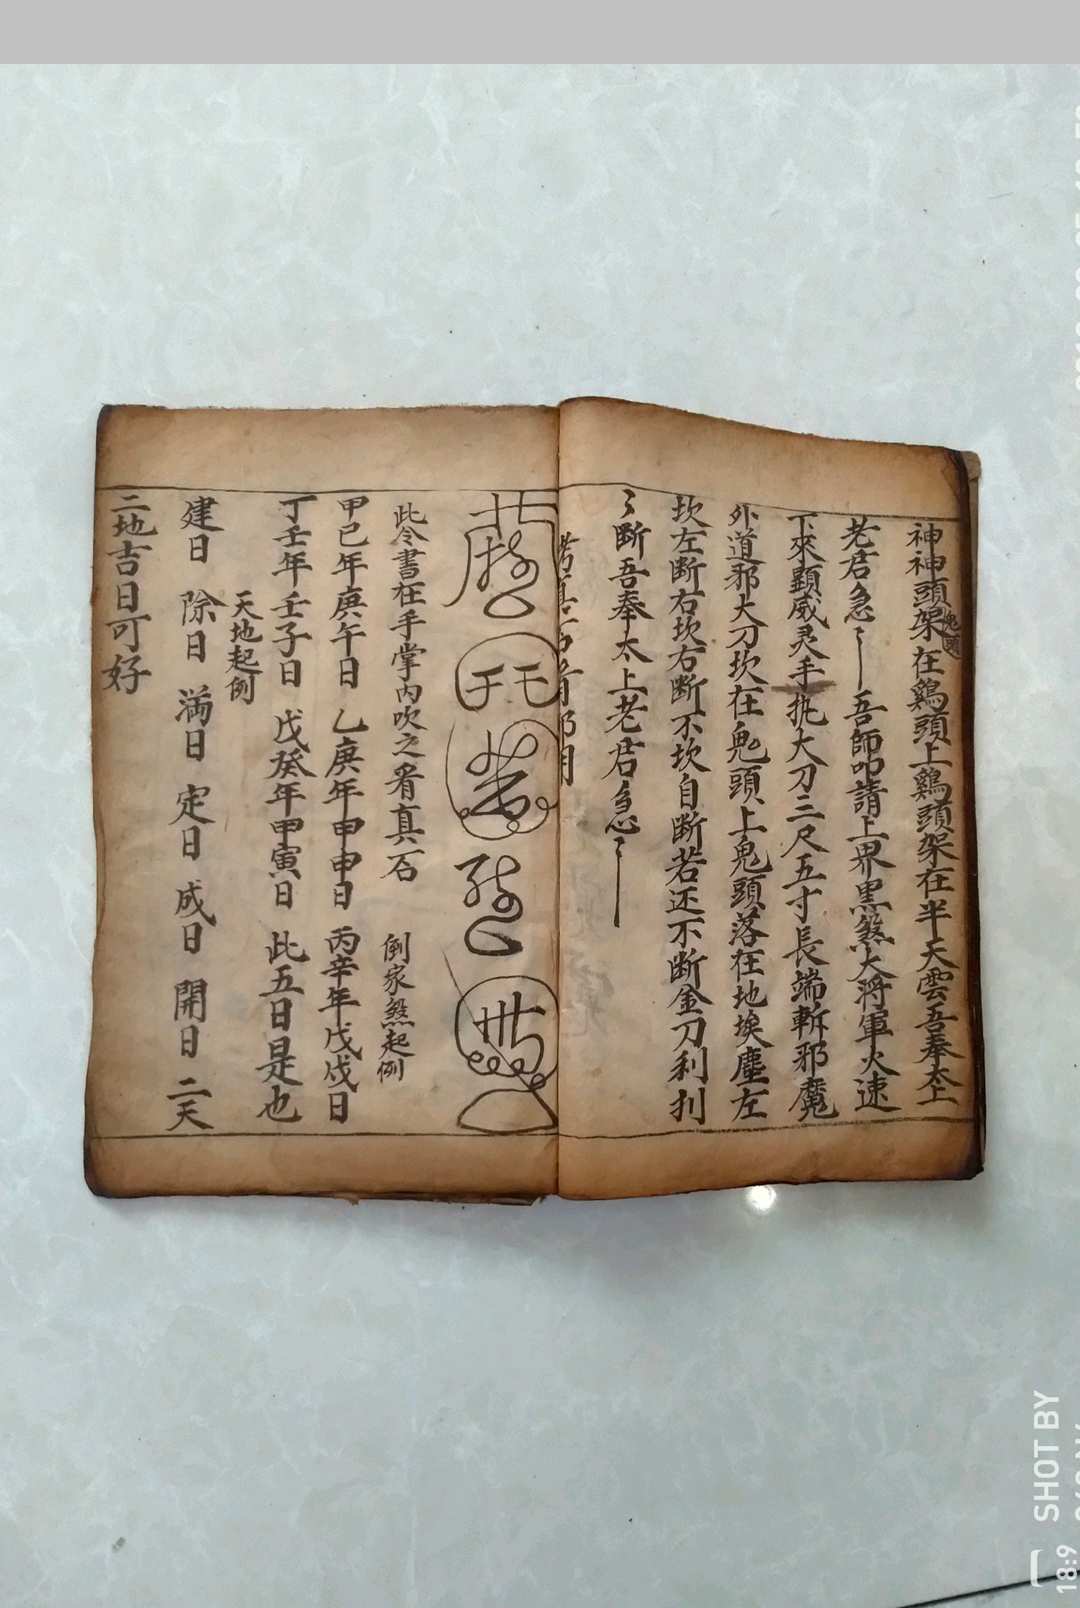 神神頭架在鷄頭上鷄頭架在半天雲吾奉太上
鬼頭
老君急〻 吾師叩請上界黑煞大将軍火速
下來顯威灵手执大刀三尺五寸長端斬邪魔
外道邪大刀坎在鬼頭上鬼頭落在地埃塵左
坎左断右坎右断不坎自断若还不断金刀利刋
〻断吾奉太上老君急〻
此令書在手掌内吹之看真石
倒家煞起例
甲己年庚午日 乙庚年甲申日 丙辛年戊戍日
丁壬年壬子日 戊癸年甲寅日 此五日是也
天地起例
建日 除日 満日 定日 成日 開日 二天
二地吉日可好
SHOT BY
18:9